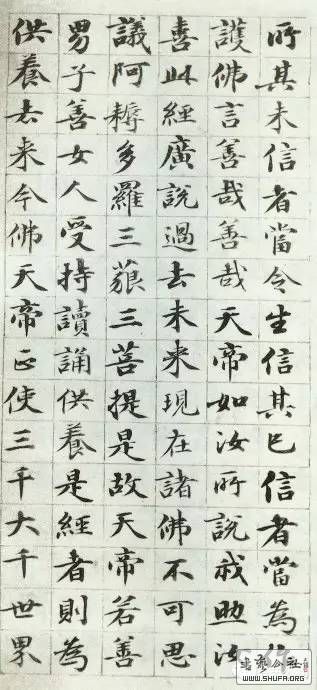 所其未信者當令生信其已信者當為
護佛言善哉善哉天帝如汝所說我助汝
喜此經廣說過去未来現在諸佛不可思
議阿耨多羅三藐三菩提是故天帝若善
男子善女人受持讀誦供養是經者則為
供養去来今佛天帝正使三千大千世界
書藝公社
WWW.SHUFA.ORG